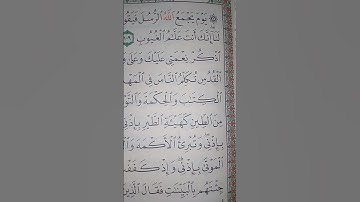 يَوْمَ يَجْمَعُ اللَّهُ الرُّسُلَ فَيَقُو
لَنَا إِنَّكَ أَنتَ عَلَّامُ الْغُيُوبِ
اذْكُرْ نِعْمَتِي عَلَيْكَ وَعَلَىٰ
الْقُدُسِ تُكَلِّمُ النَّاسَ فِي الْمَهْ
الْكِتَابَ وَالْحِكْمَةَ وَالتَّوْ
مِنَ الطِّينِ كَهَيْئَةِ الطَّيْرِ بِإِذْنِي
بِإِذْنِي وَتُبْرِئُ الْأَكْمَهَ وَالْ
الْمَوْتَىٰ بِإِذْنِي وَإِذْ كَفَفْ
جِئْتَهُم بِالْبَيِّنَاتِ فَقَالَ الَّذِينَ